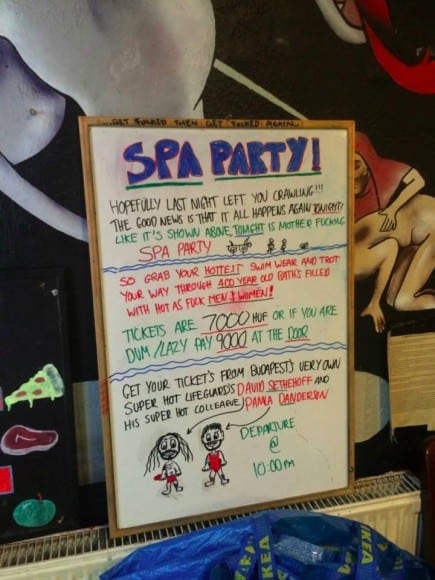 ...GET FUCKED THEN GET FUCKED AGAIN...
SPA PARTY!
HOPEFULLY LAST NIGHT LEFT YOU CRAWLING!!!
THE GOOD NEWS IS THAT IT ALL HAPPENS AGAIN TONIGHT!
LIKE IT'S SHOWN ABOVE, TONIGHT IS MOTHER FUCKING
SPA PARTY
SO GRAB YOUR HOTTEST SWIM WEAR AND TROT
YOUR WAY THROUGH 400 YEAR OLD BATH'S FILLED
WITH HOT AS FUCK MEN & WOMEN!
TICKETS ARE 7000 HUF OR IF YOU ARE
DUM/LAZY PAY 9000 AT THE DOOR
GET YOUR TICKET'S FROM BUDAPEST'S VERY OWN
SUPER HOT LIFEGUARD'S DAVID SETHEHOFF AND
HIS SUPER HOT COLLEAGUE PAMLA DANDERSON
DEPARTURE
@
10:00PM
IKEA